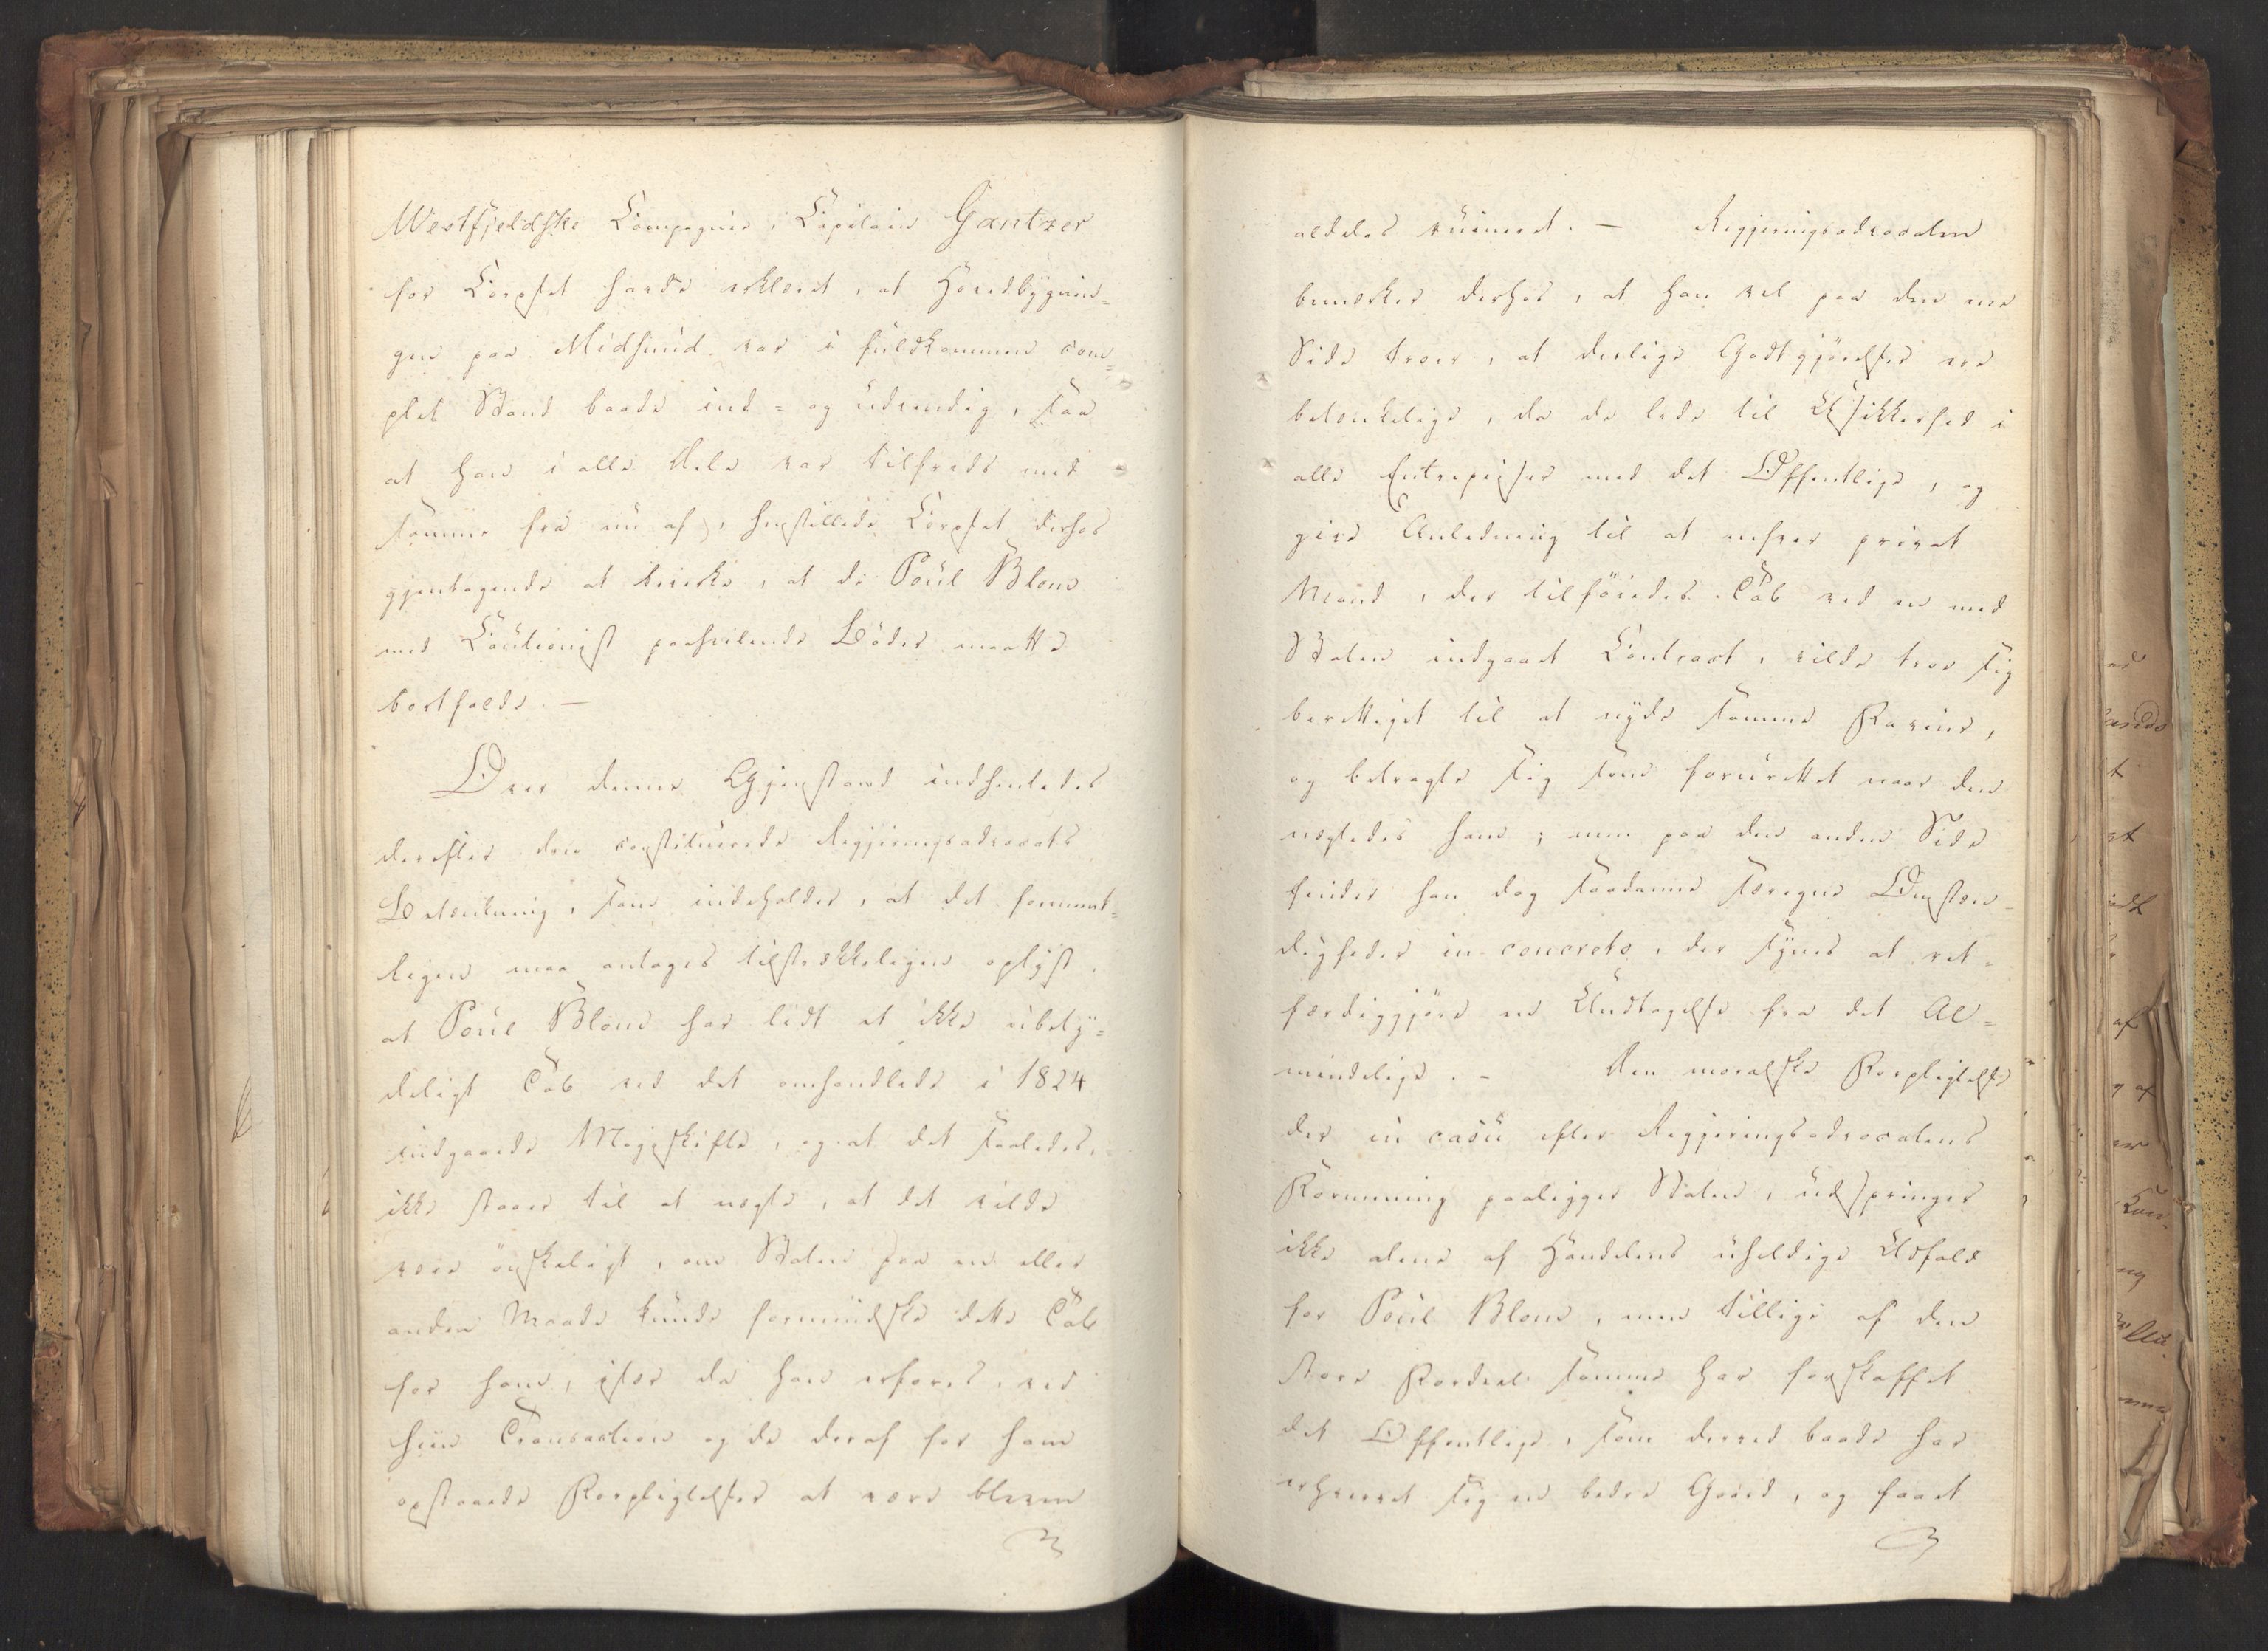 Westfjeldske Compagnie, Capitain Gantzer
for Corpset havde erklæret, at Hovedbygnin-
gen paa Midsund var i fuldkommen com-
plet Stand baade ind- og udvendig, saa
at han i alle Dele var tilfreds med
samme fra nu af, henstillede Corpset derhos
gjentagende at bevirke, at de Poul Blom
med Cautionist paahvilende Bøder maatte
bortfalde. —
Over denne Gjenstand indhentedes
derefter den constituerede Regjeringsadvocats
Betænkning, som indeholder, at det formeent-
ligen maa antages tilstrækkeligen oplyst,
at Poul Blom har lidt et ikke ubety-
deligt Tab ved det omhandlede i 1824
indgaaede Mageskifte, og at det saaledes,
ikke staaer til at nægte, at det vilde
være ønskeligt, om Staten paa en eller
anden Maade kunde formindske dette Tab
for ham, især da han erfares, ved
hiin Transaction og de deraf for ham
opstaaede Forpligtelser at være bleven
aldeles ruineret. — Regjeringsadvocaten
bemærker derhos, at han vel paa den ene
Side troer, at deslige Godtgjørelser ere
betænkelige, da de lede til Usikkerhed i
alle Entrepriser med det Offentlige, og
give Anledning til at enhver privat
Mand, der tilføiedes Tab ved en med
Staten indgaaet Contract, vilde troe sig
berettiget til at nyde samme Favør,
og betragte sig som forurettet naar den
nægtedes ham; men paa den anden Side
finder han dog saadanne særegne Omstæn-
digheder in concreto, der synes at ret-
færdiggjøre en Undtagelse fra det Al-
mindelige. — Den moralske Forpligtelse
der in casu efter Regjeringsadvocatens
Formening paaligger Staten, udspringer
ikke alene af Handelens uheldige Udfald
for Poul Blom, men tillige af den
store Fordeel samme har forskaffet
det Offentlige, som derved baade har
erhvervet sig en bedre Gaard, og faaet